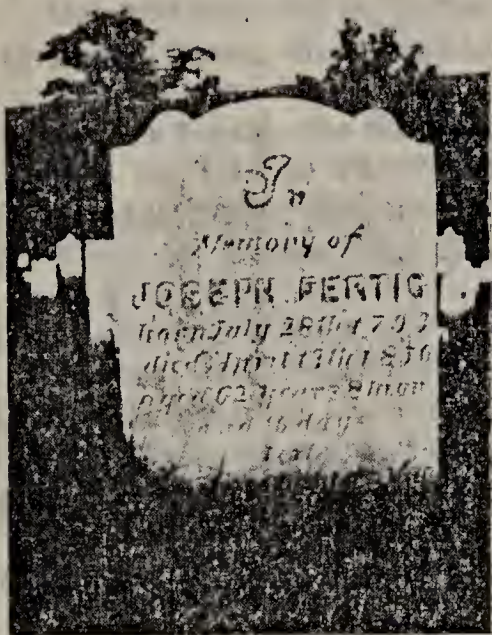 In
Memory of
JOSEPH FERTIG
born July 28th 1793
died April 13th 1856
aged 62 years 8 mon
and 16 days